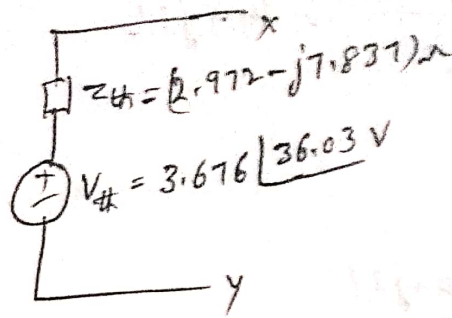 x
Zth = (2.972 - j7.837)Ω
+
Vth = 3.676 ∠36.03 V
y